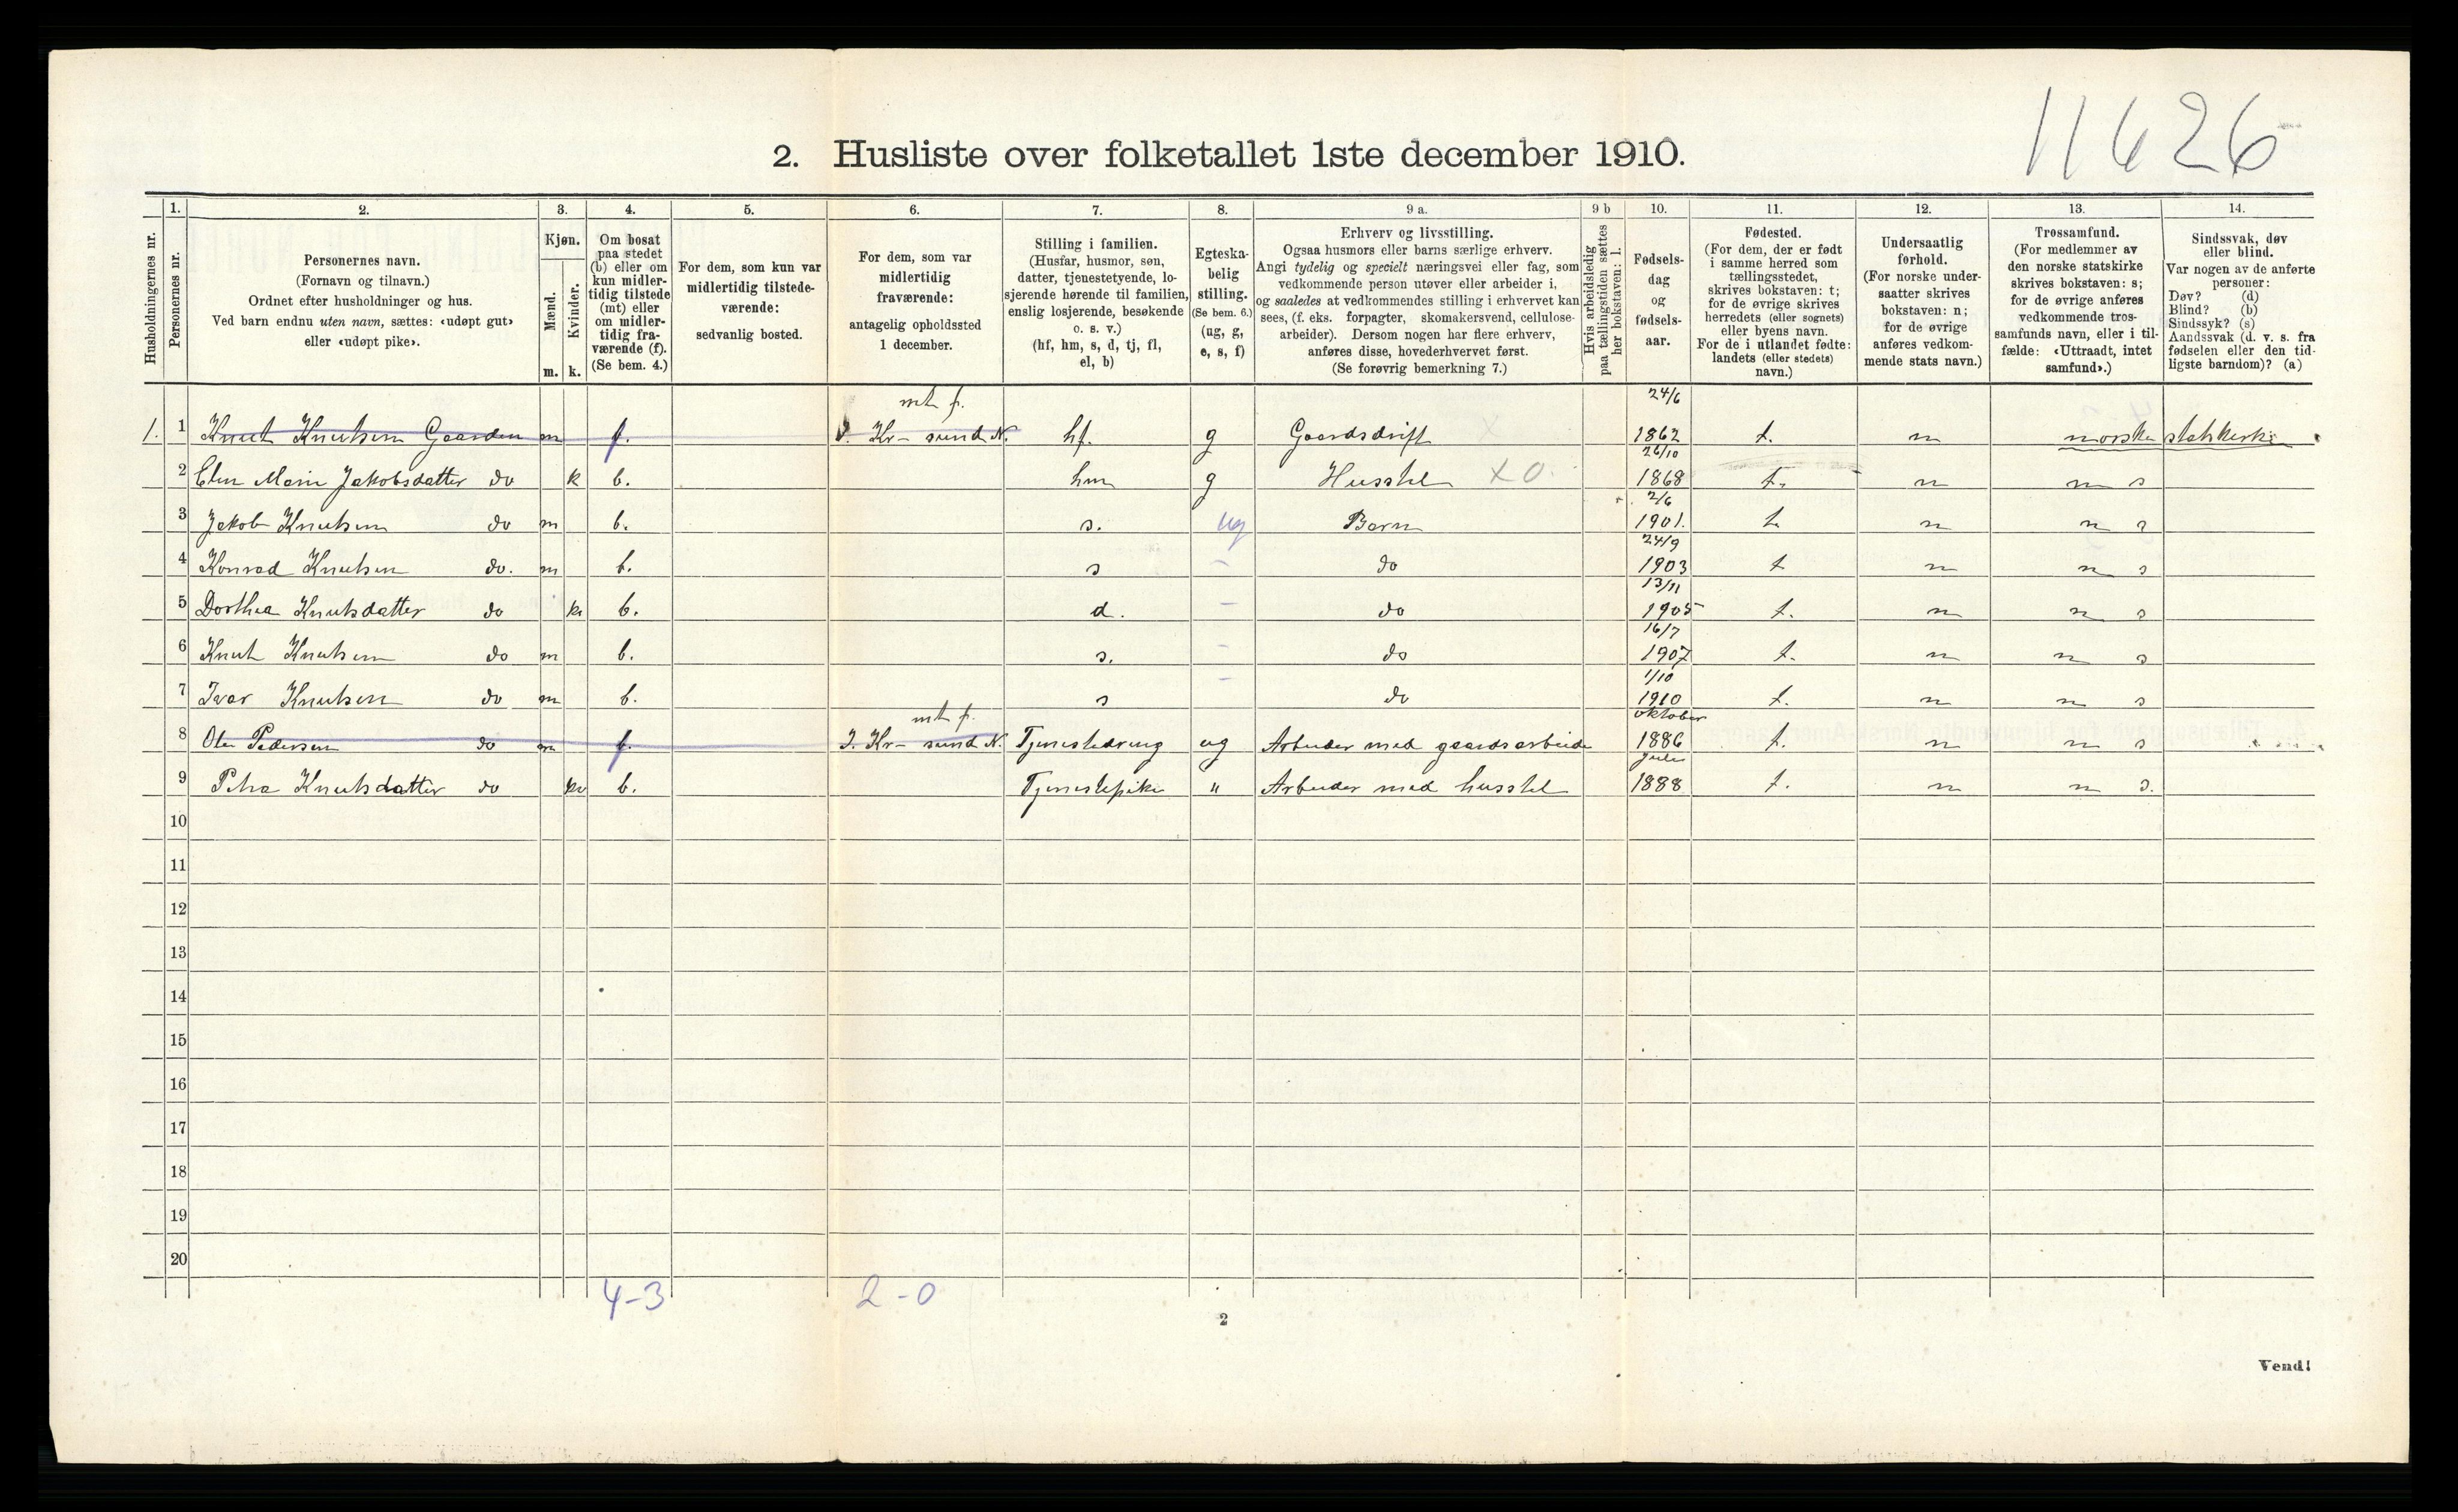 11626
2. Husliste over folketallet 1ste december 1910.
Husholdningernes nr.
1. Personernes nr.
2. Personernes navn.
(Fornavn og tilnavn.)
Ordnet efter husholdninger og hus.
Ved barn endnu uten navn, sættes: «udøpt gut»
eller «udøpt pike».
3. Kjøn.
Mænd. m.
Kvinder. k.
4. Om bosat
paa stedet
(b) eller om
kun midler-
tidig tilstede
(mt) eller
om midler-
tidig fra-
værende (f).
(Se bem. 4.)
5. For dem, som kun var
midlertidig tilstede-
værende:
sedvanlig bosted.
6. For dem, som var
midlertidig
fraværende:
antagelig opholdssted
1 december.
7. Stilling i familien.
(Husfar, husmor, søn,
datter, tjenestetyende, lo-
sjerende hørende til familien,
enslig losjerende, besøkende
o. s. v.)
(hf, hm, s, d, tj, fl,
el, b)
8. Egteska-
belig
stilling.
(Se bem. 6.)
(ug, g,
e, s, f)
9 a. Erhverv og livsstilling.
Ogsaa husmors eller barns særlige erhverv.
Angi tydelig og specielt næringsvei eller fag, som
vedkommende person utøver eller arbeider i,
og saaledes at vedkommendes stilling i erhvervet kan
sees, (f. eks. forpagter, skomakersvend, cellulose-
arbeider). Dersom nogen har flere erhverv,
anføres disse, hovederhvervet først.
(Se forøvrig bemerkning 7.)
9 b Hvis arbeidsledig
paa tællingstiden sættes
her bokstaven: l.
10. Fødsels-
dag
og
fødsels-
aar.
11. Fødested.
(For dem, der er født
i samme herred som
tællingsstedet,
skrives bokstaven: t;
for de øvrige skrives
herredets (eller sognets)
eller byens navn.
For de i utlandet fødte:
landets (eller stedets)
navn.)
12. Undersaatlig
forhold.
(For norske under-
saatter skrives
bokstaven: n;
for de øvrige
anføres vedkom-
mende stats navn.)
13. Trossamfund.
(For medlemmer av
den norske statskirke
skrives bokstaven: s;
for de øvrige anføres
vedkommende tros-
samfunds navn, eller i til-
fælde: «Uttraadt, intet
samfund».)
14. Sindssvak, døv
eller blind.
Var nogen av de anførte
personer:
Døv? (d)
Blind? (b)
Sindssyk? (s)
Aandssvak (d. v. s. fra
fødselen eller den tid-
ligste barndom)? (a)
mt f. 24/6
1. 1 Knut Knutsen Gaarden m f. Kr-sund N. hf. g Gaardsdrift X 1862 t. n norske statskirke
26/10
2 Elen Marie Jakobsdatter do k b. hm g Husstel X O. 1868 t. n n s
2/6
3 Jakob Knutsen do m b. s. ug Barn 1901. t. n n s
24/9
4 Konrad Knutsen do. m b. s – do 1903 t n n s
13/11
5 Dorthea Knutsdatter do k b. d. – do 1905 t. n n s
16/7
6 Knut Knutsen do m b. s. – do 1907 t. n n s
1/10
7 Ivar Knutsen do m b. s – do 1910 t. n n s
mt f. oktober
8 Ole Pedersen do m f. I. Kr-sund N. Tjenestedreng ug Arbeider med gaardsarbeide 1886 t. n n s
Juli
9 Petra Knutsdatter do k b. Tjenestepike " Arbeider med husstel 1888 t. n n s.
10
11
12
13
14
15
16
17
18
19
20
4-3 2-0
2
Vend!